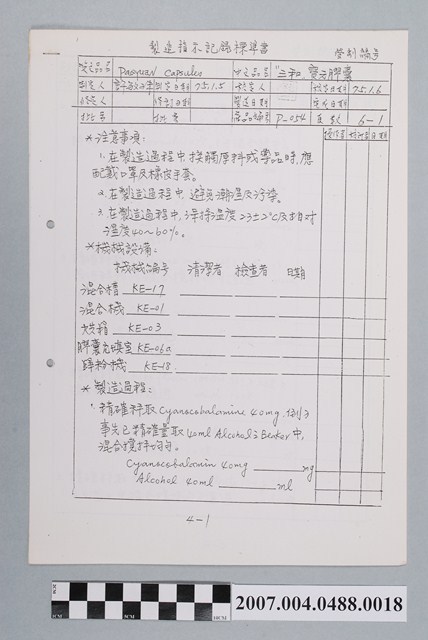 製造指示記錄標準書
管制編號
英文品名 Paoyuan Capsules 中文品名 "三和"寶元膠囊
制定人 制定日期 75.1.5 核定人 核定日期 75.1.6
修定人 修訂日期 製造日期 完成日期
批號 批量 產品編號 P-054 頁數 6-1
操作者 核對者 日期
*注意事項:
1. 在製造過程中接觸原料或藥品時,應
配戴口罩及橡皮手套。
2. 在製造過程中,避免潮濕及污染。
3. 在製造過程中,保持溫度23±2°C及相對
溼度40~60%。
*機械設備:
機械編號 清潔者 檢查者 日期
混合槽 KE-17
混合機 KE-01
烘箱 KE-03
膠囊充填室 KE-06a
篩粉機 KE-18
*製造過程:
1. 精確秤取Cyanocobalamine 40mg,倒于
事先已精確量取40ml Alcohol之Beaker中,
混合攪拌均勻。
Cyanocobalamin 40mg mg
Alcohol 40ml ml
4-1
CM
2007.004.0488.0018